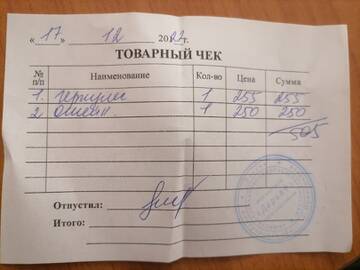 « 17 » 12 2023 г.
ТОВАРНЫЙ ЧЕК
№ п/п Наименование Кол-во Цена Сумма
1. Геркулес 1 255 255
2. 1 250 250
505
Отпустил:
Итого: